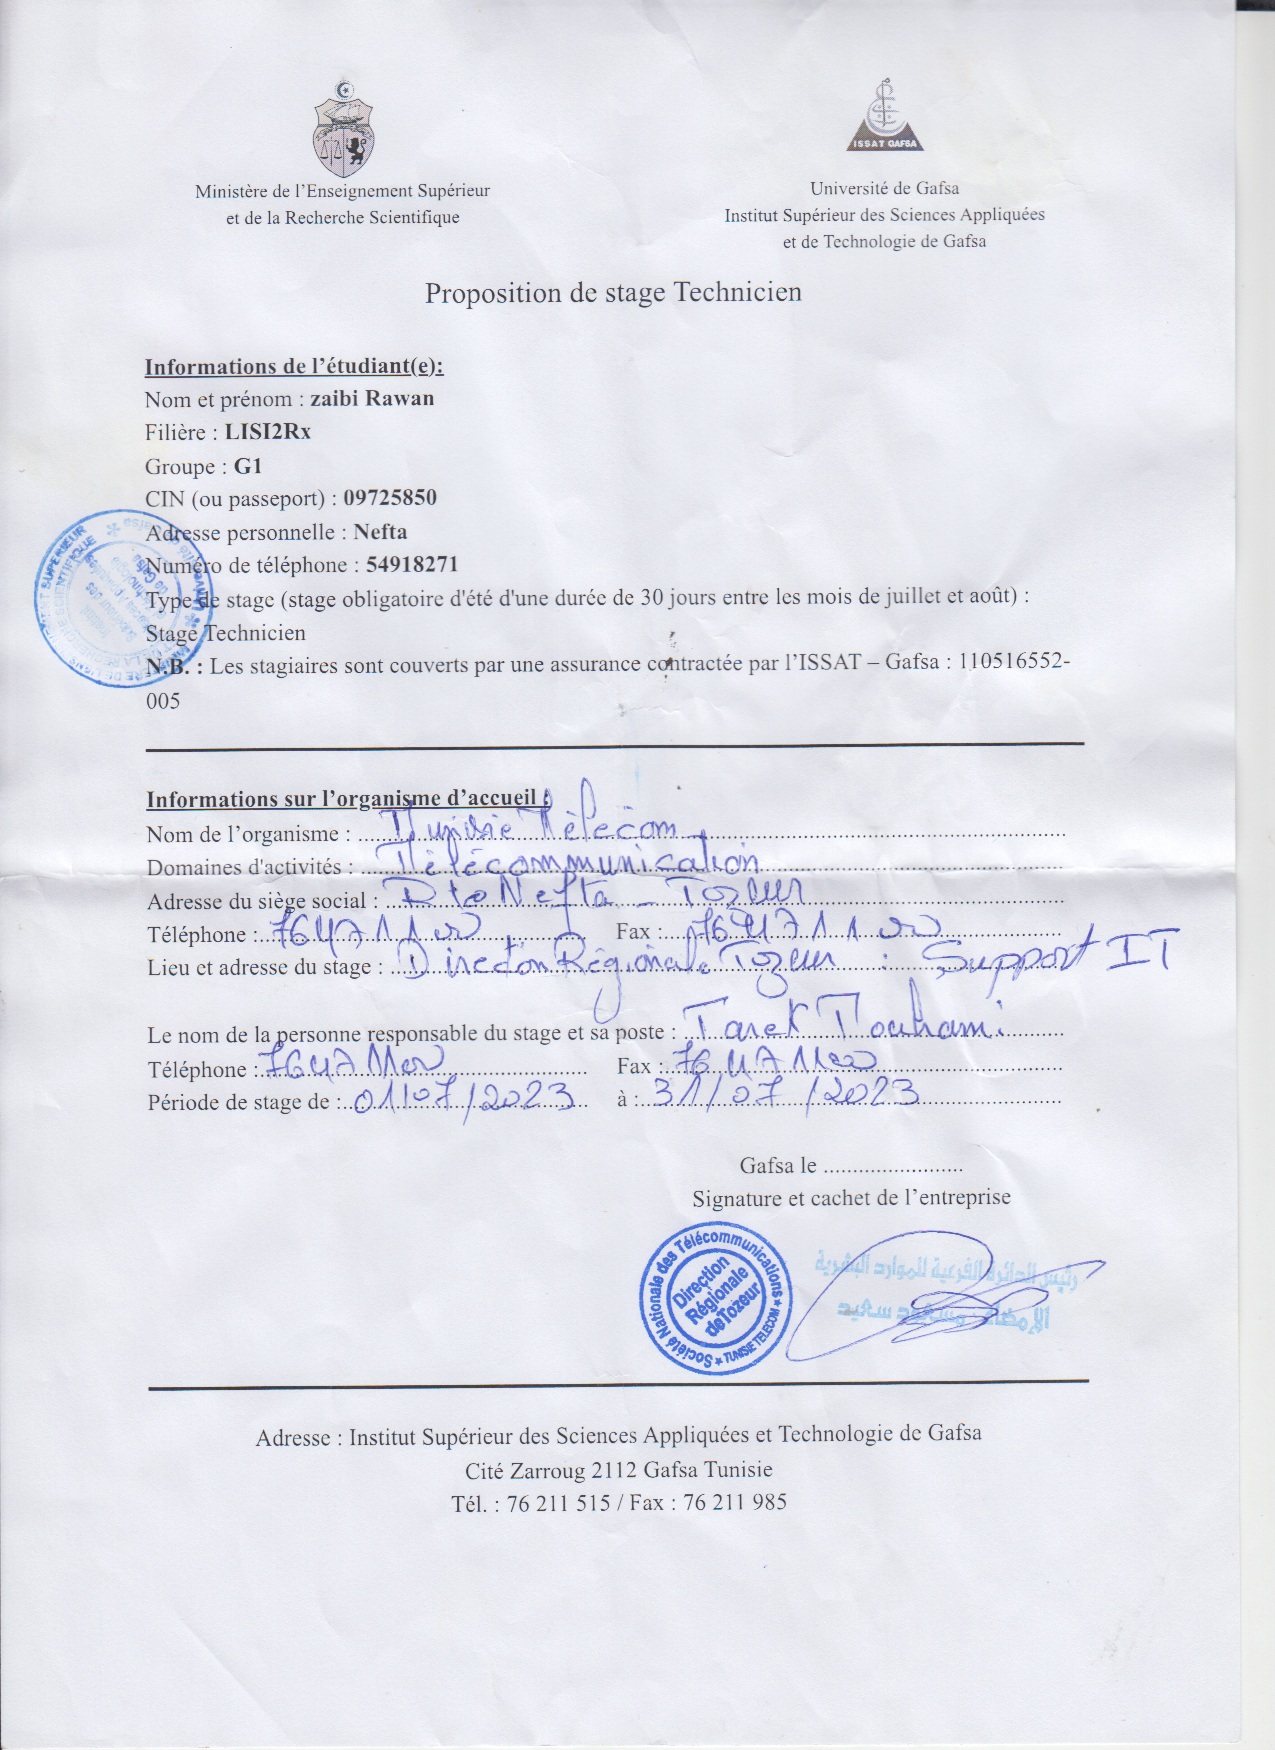 ISSAT GAFSA
Ministère de l'Enseignement Supérieur
et de la Recherche Scientifique
Université de Gafsa
Institut Supérieur des Sciences Appliquées
et de Technologie de Gafsa
Proposition de stage Technicien
Informations de l'étudiant(e):
Nom et prénom : zaibi Rawan
Filière : LISI2Rx
Groupe : G1
CIN (ou passeport) : 09725850
Adresse personnelle : Nefta
Numéro de téléphone : 54918271
Type de stage (stage obligatoire d'été d'une durée de 30 jours entre les mois de juillet et août) :
Stage Technicien
N.B. : Les stagiaires sont couverts par une assurance contractée par l'ISSAT – Gafsa : 110516552-
005
Informations sur l'organisme d'accueil :
Nom de l'organisme : Tunisie Télécom
Domaines d'activités : Télécommunication
Adresse du siège social : Rte Nefta - Tozeur
Téléphone : Fax :
Lieu et adresse du stage : Direction Régionale Tozeur : Support IT
Le nom de la personne responsable du stage et sa poste : Tarek Touhami
Téléphone : Fax :
Période de stage de : 01/07/2023 à : 31/07/2023
Gafsa le ........................
Signature et cachet de l'entreprise
Société Nationale des Télécommunications
★ TUNISIE TELECOM ★
Direction
Régionale
de Tozeur
رئيس الدائرة الفرعية للموارد البشرية
Adresse : Institut Supérieur des Sciences Appliquées et Technologie de Gafsa
Cité Zarroug 2112 Gafsa Tunisie
Tél. : 76 211 515 / Fax : 76 211 985